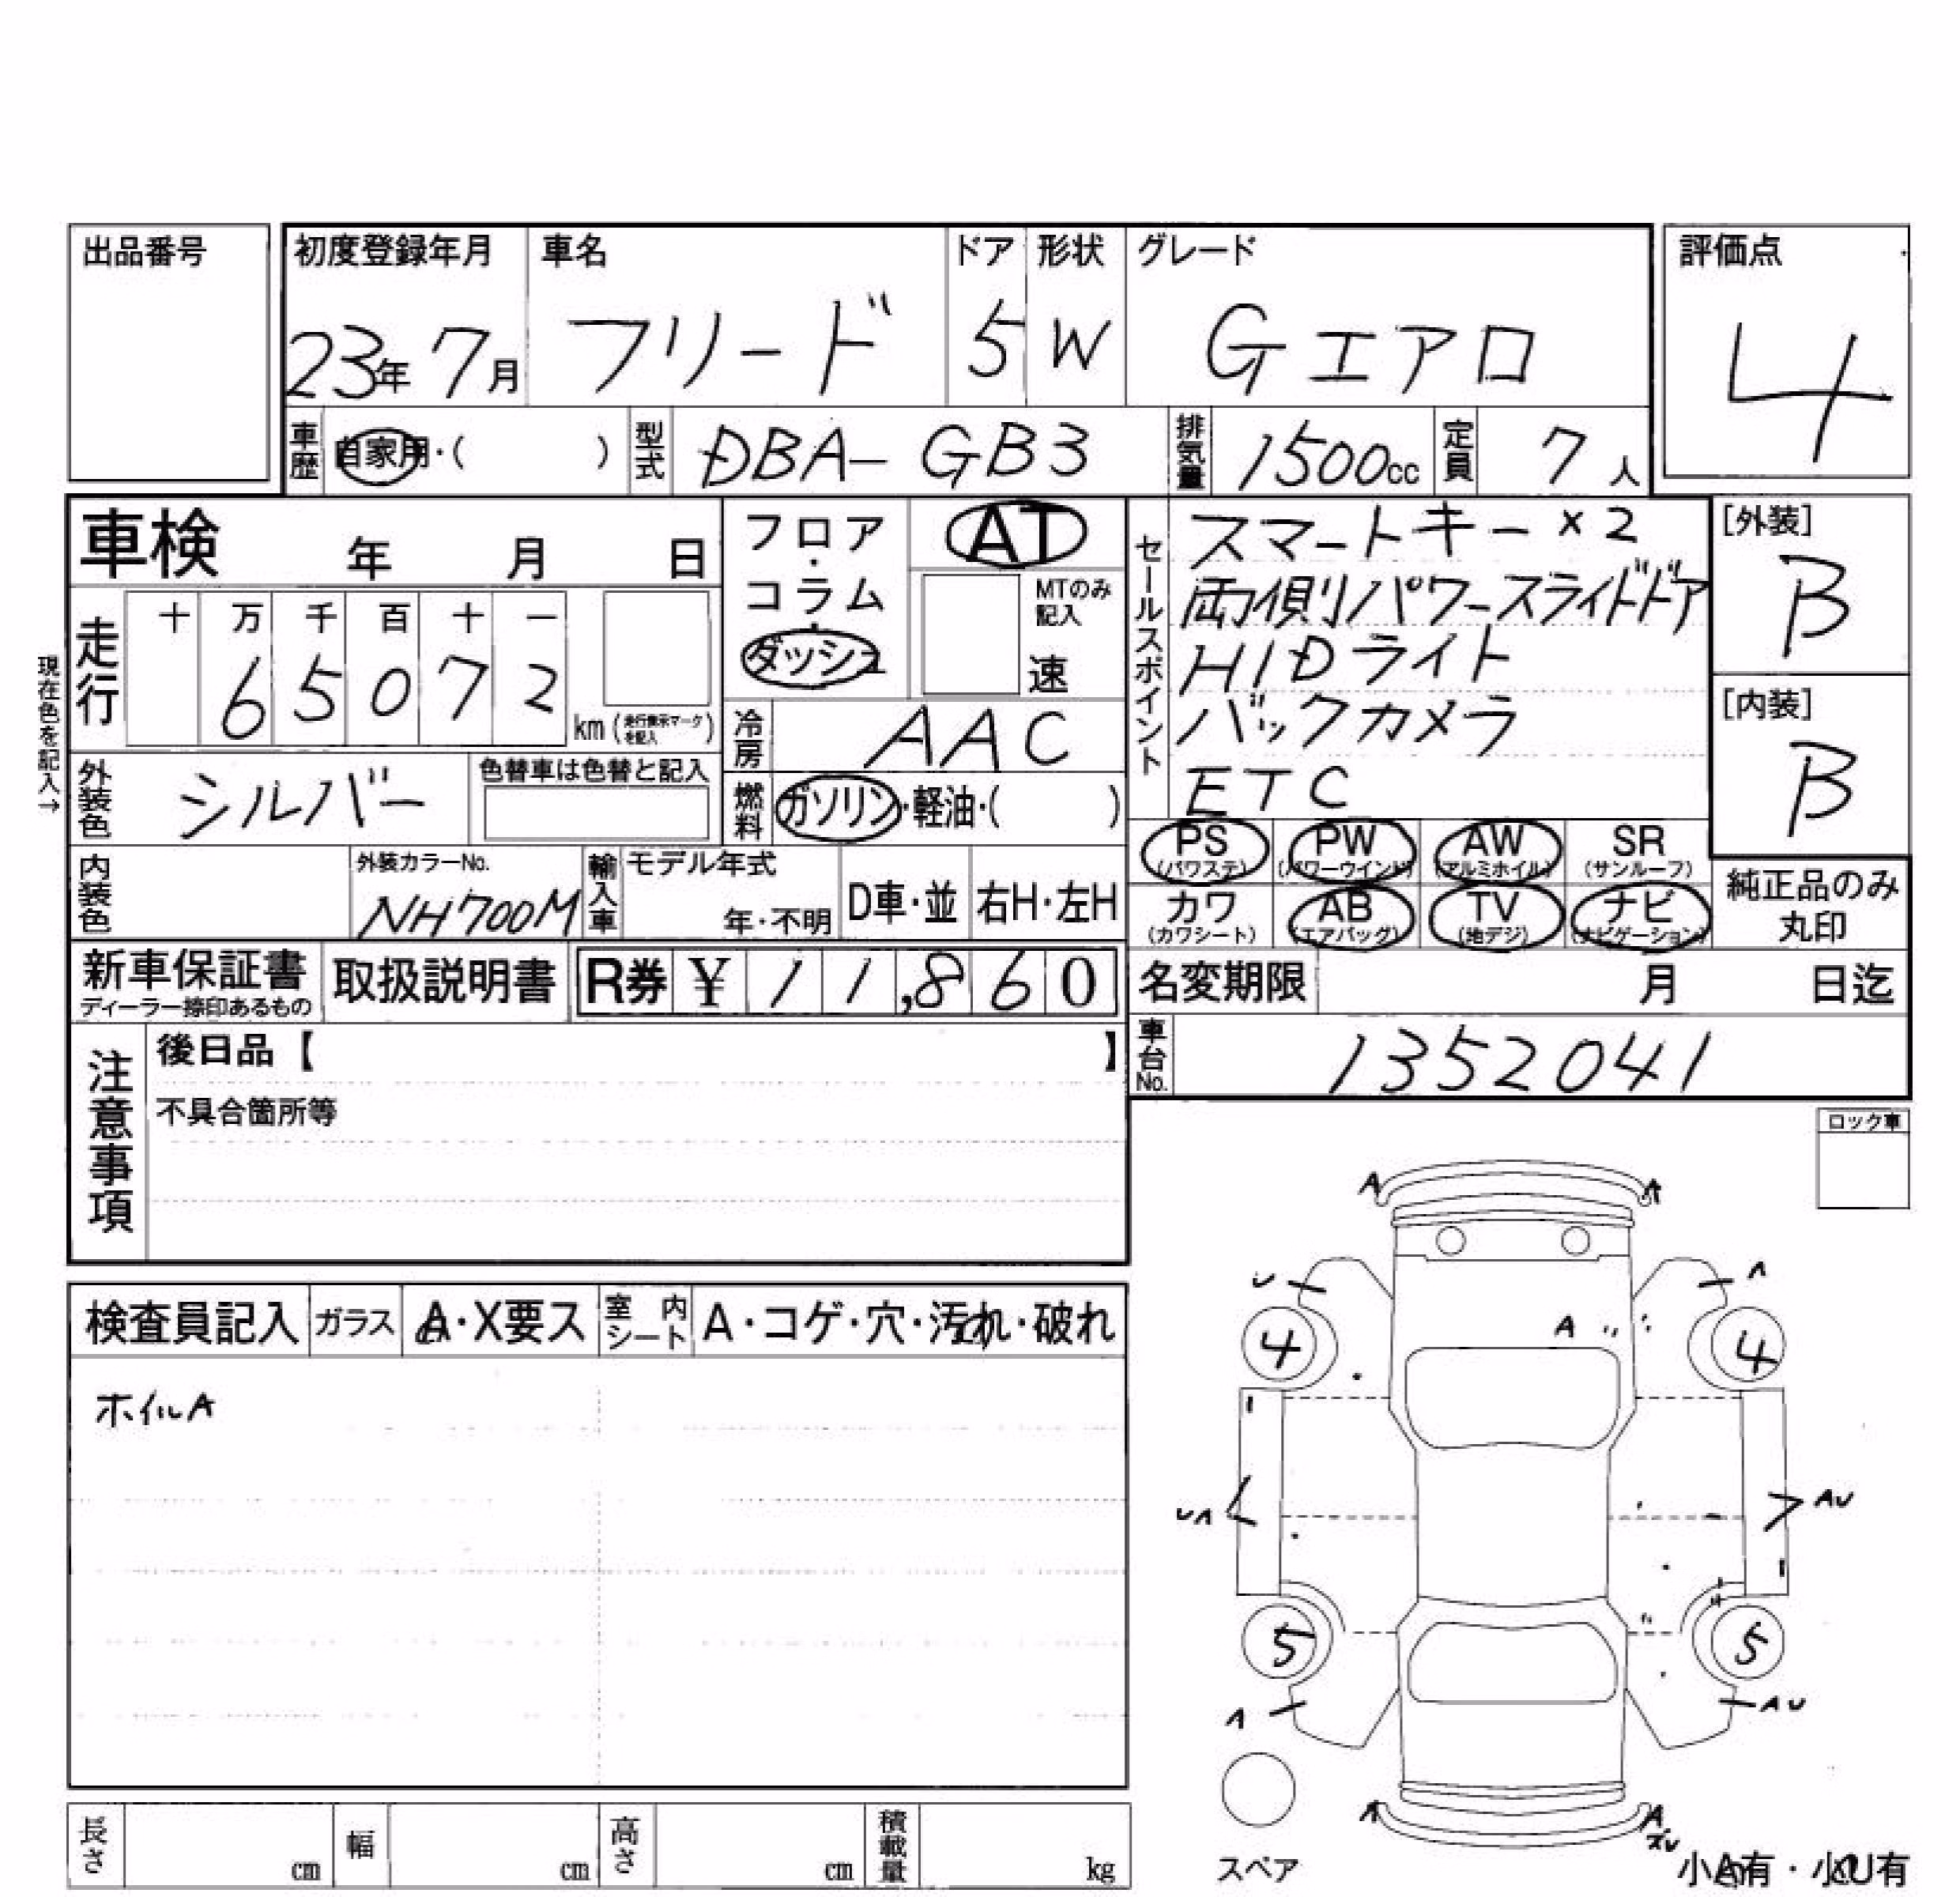 出品番号
初度登録年月 車名 ドア 形状 グレード 評価点
23年 7月 フリード 5 W Gエアロ 4
車歴 自家用・( ) 型式 DBA-GB3 排気量 1500cc 定員 7人
車検 年 月 日
フロア・コラム・ダッシュ
AT
MTのみ記入
速
セールスポイント
スマートキー×2
両側パワースライドドア
HIDライト
バックカメラ
ETC
[外装]
B
[内装]
B
現在色を記入→
走行 十 万 千 百 十 一
6 5 0 7 2 km (走行表示マークを記入)
冷房 AAC
外装色 シルバー 色替車は色替と記入
燃料 ガソリン・軽油・( )
PS (パワステ) PW (パワーウインド) AW (アルミホイル) SR (サンルーフ)
カワ (カワシート) AB (エアバッグ) TV (地デジ) ナビ (ナビゲーション)
純正品のみ丸印
内装色 外装カラーNo. NH700M 輸入車 モデル年式 年・不明 D車・並 右H・左H
新車保証書 ディーラー捺印あるもの 取扱説明書 R券 ¥ 11,860
名変期限 月 日迄
車台No. 1352041
注意事項
後日品【 】
不具合箇所等
ロック車
検査員記入 ガラス A・X要ス 室内シート A・コゲ・穴・汚れ・破れ
ホイルA
A A
U A
4 A 4
UA AU
5 5
A AU
A A
スペア
小A有・小U有
長さ cm 幅 cm 高さ cm 積載量 kg